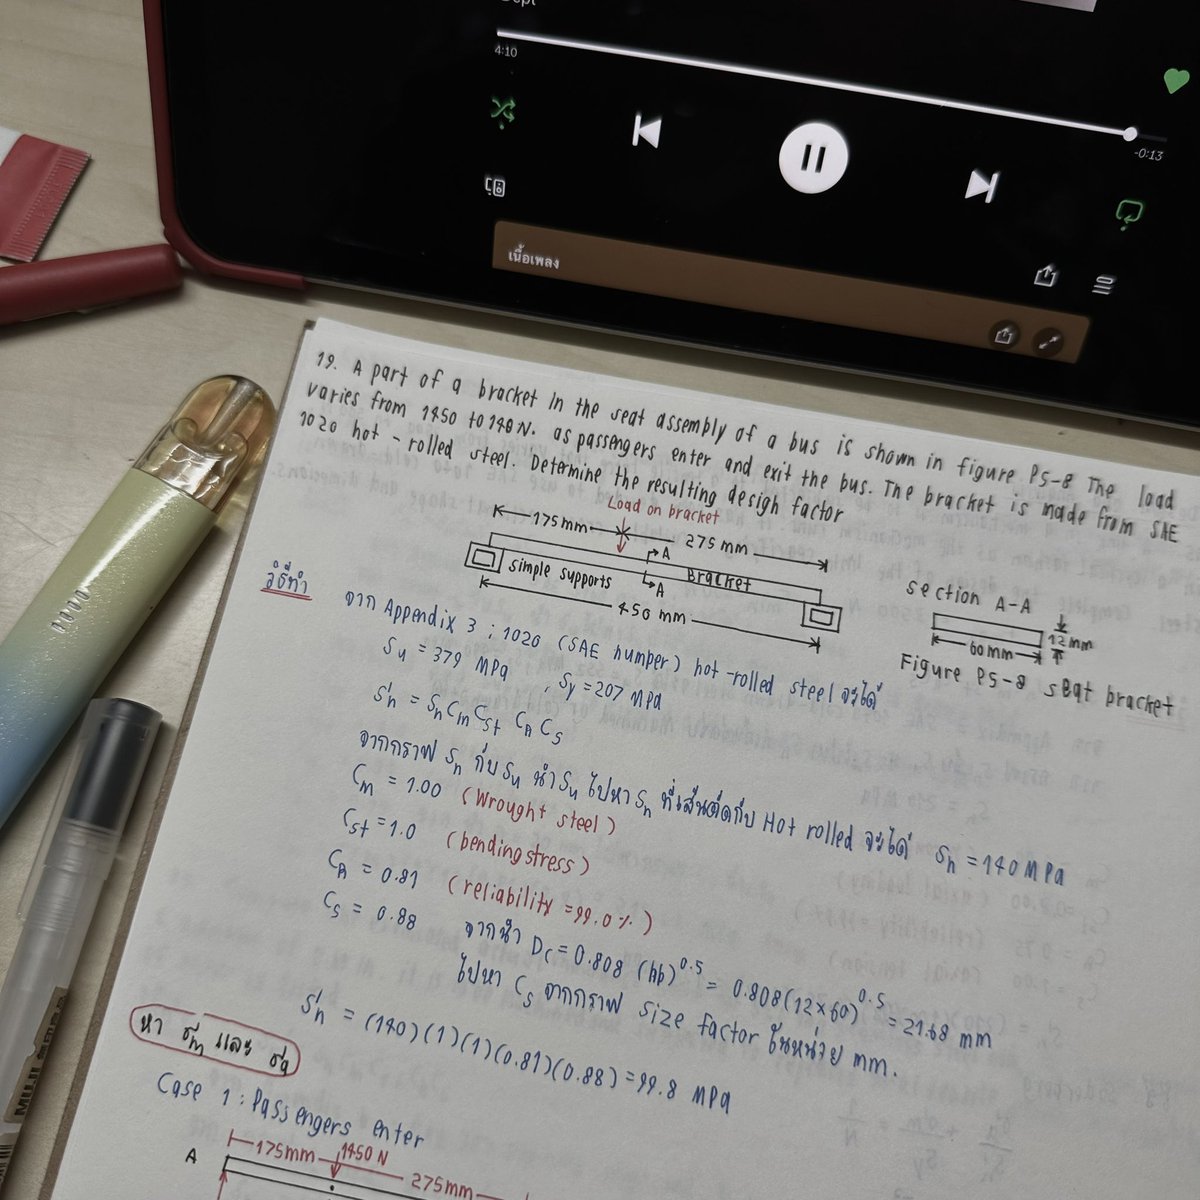 4:10
-0:13
เนื้อเพลง
19. A part of a bracket in the seat assembly of a bus is shown in figure P5-8 The load
varies from 1450 to 140 N. as passengers enter and exit the bus. The bracket is made from SAE
1020 hot-rolled steel. Determine the resulting desigh factor
Load on bracket
175 mm
275 mm
A
A
simple supports
Bracket
450 mm
section A-A
12 mm
60 mm
Figure P5-8 sEat bracket
วิธีทำ
จาก Appendix 3 ; 1020 (SAE number) hot-rolled steel จะได้
Su = 379 MPa , Sy = 207 MPa
S'n = Sn Cm Cst CR Cs
จากกราฟ Sn กับ Su นำ Su ไปหา Sn ที่เส้นตัดกับ Hot rolled จะได้ Sn = 140 MPa
Cm = 1.00 (Wrought steel)
Cst = 1.0 (bending stress)
CR = 0.81 (reliability = 99.0 %)
Cs = 0.88 จากนำ Dc = 0.808 (hb)^0.5 = 0.808(12×60)^0.5 = 21.68 mm
ไปหา Cs จากกราฟ size factor ในหน่วย mm.
S'n = (140)(1)(1)(0.81)(0.88) = 99.8 MPa
หา σm และ σa
Case 1 : Passengers enter
175mm
1450 N
275mm
A
MUJI 無印良品